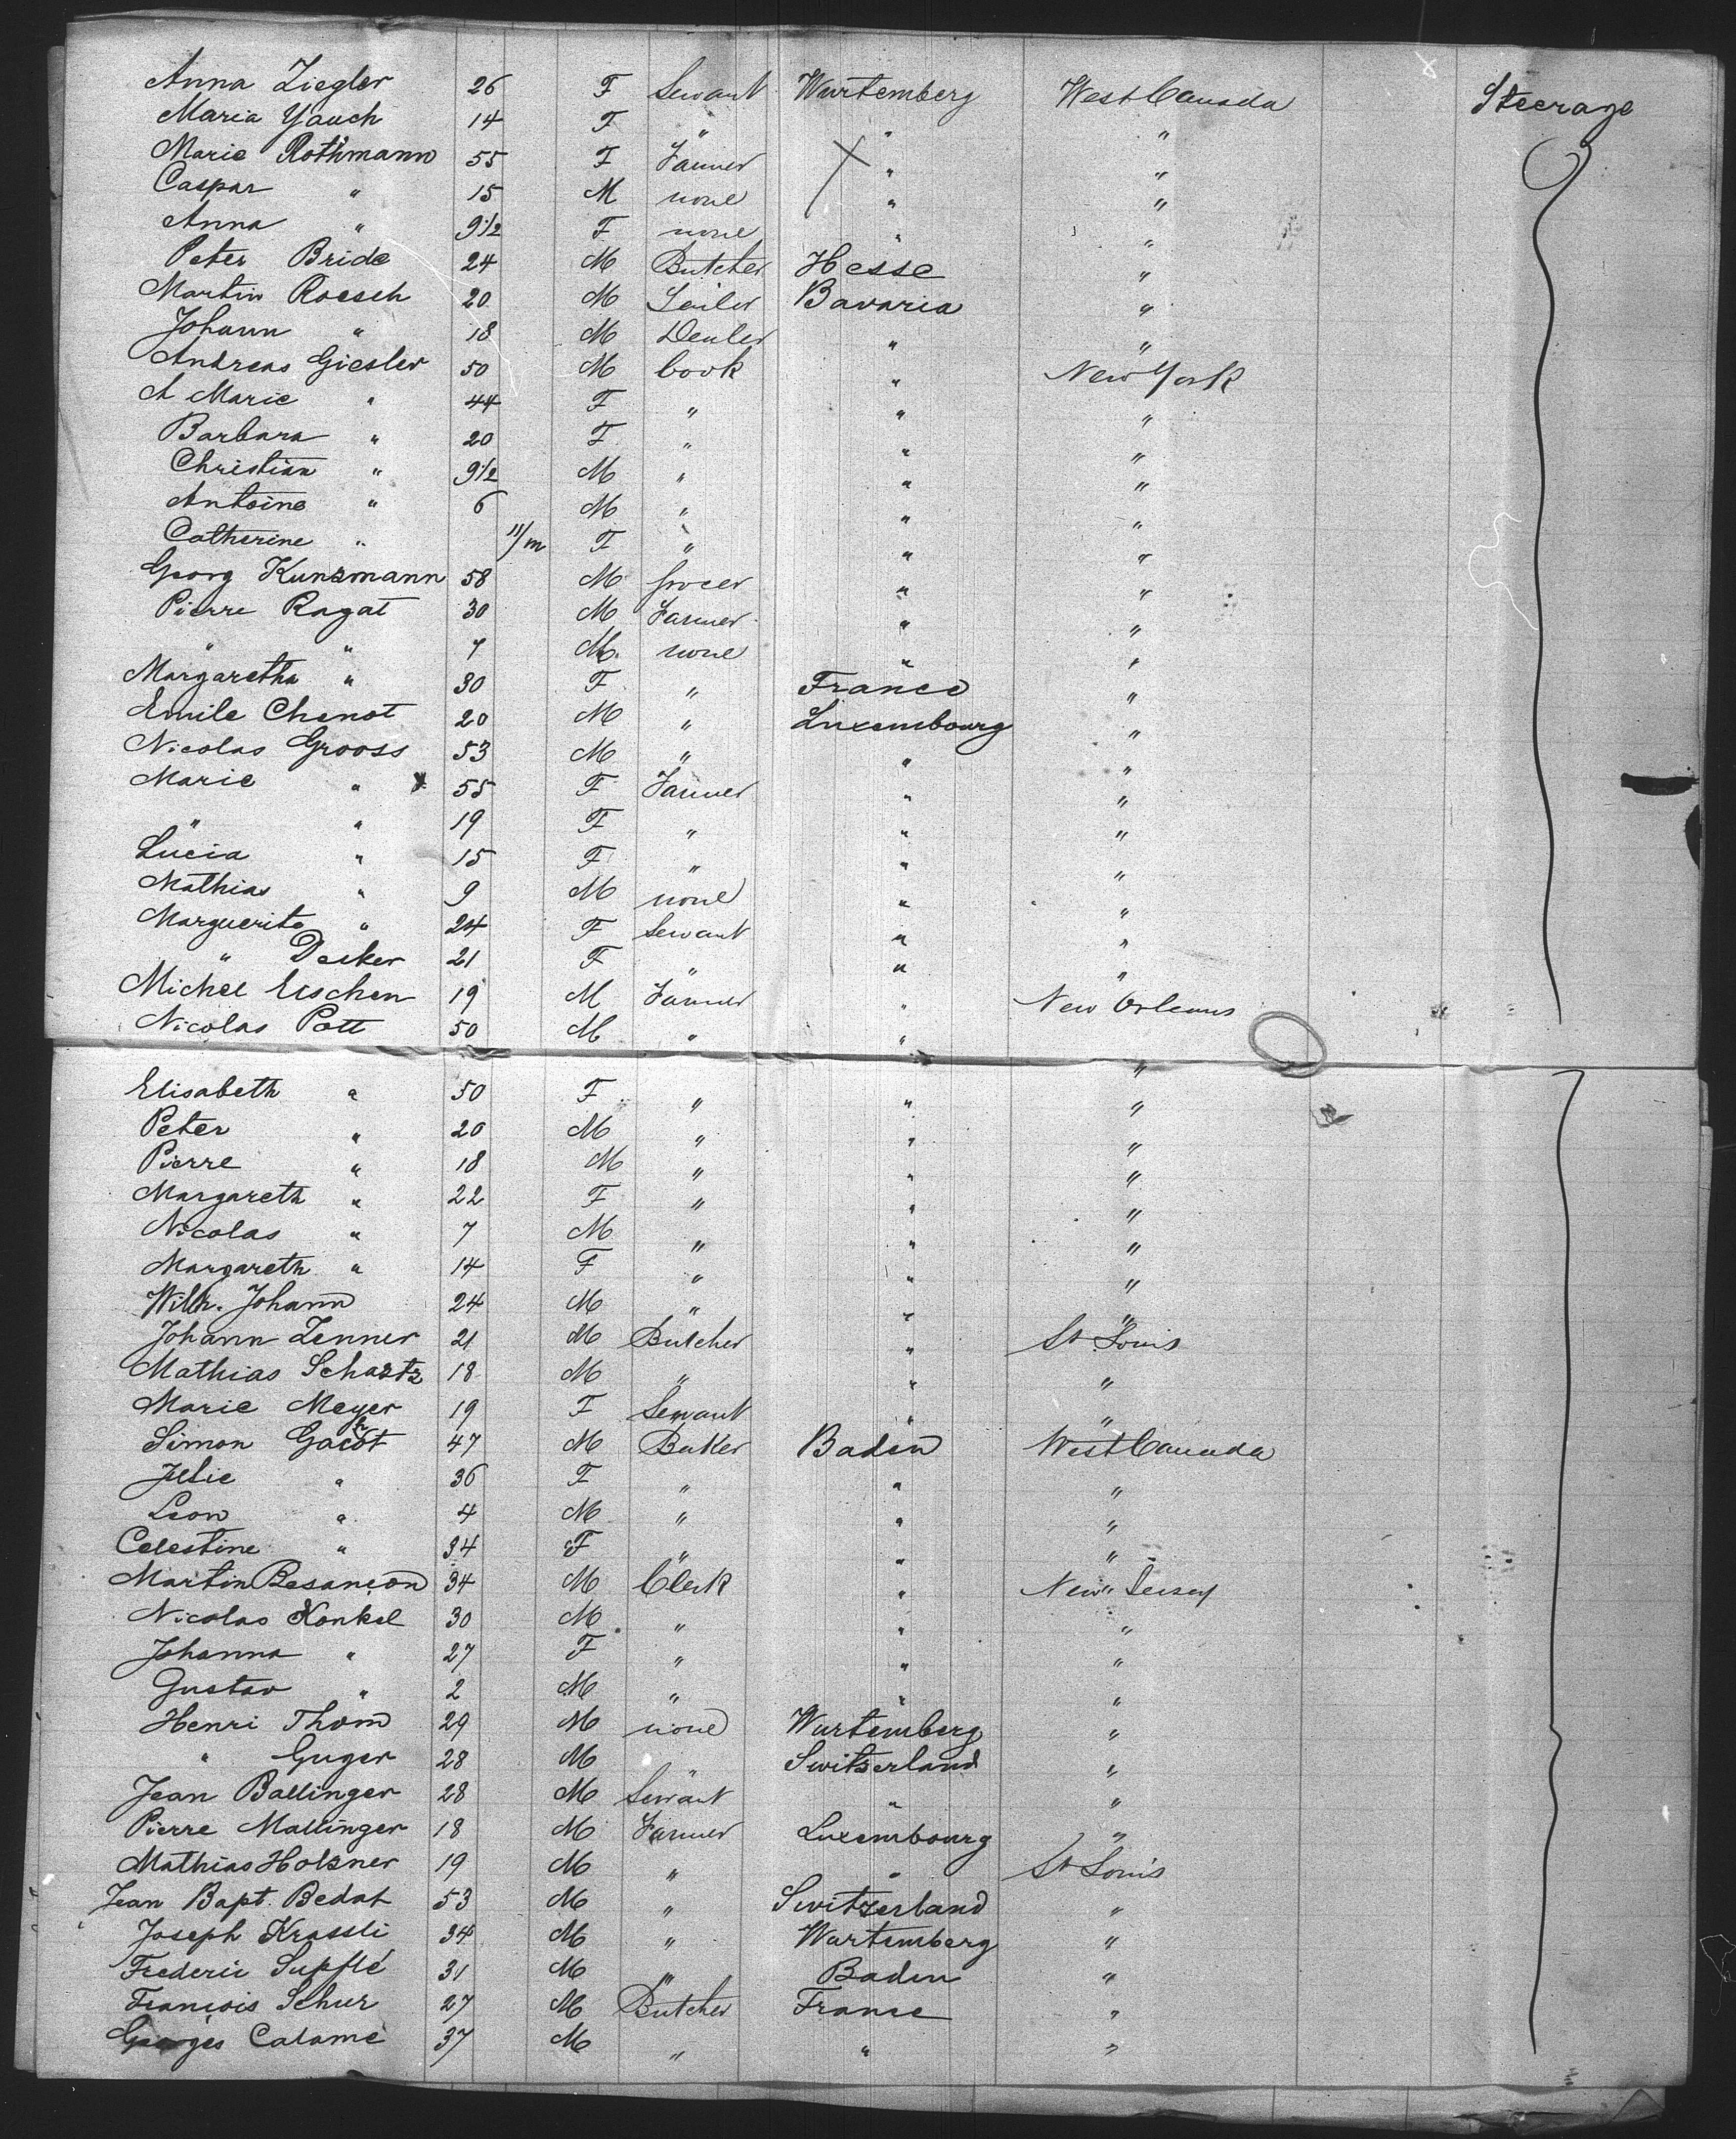 Anna Ziegler 26 F Servant Wurtemberg West Canada Steerage
Maria Yauch 14 F " " "
Marie Rothmann 55 F Farmer " "
Caspar " 15 M none " "
Anna " 9 1/2 F none " "
Peter Bride 24 M Butcher Hesse "
Martin Roesch 20 M Bavaria "
Johann " 18 M Dealer " "
Andreas Giesler 50 M Cook " New York
A Marie " 44 F " " "
Barbara " 20 F " " "
Christian " 9 1/2 M " " "
Antoine " 6 M " " "
Catherine " 11/m F " " "
Georg Kunzmann 58 M Grocer " "
Pierre Ragat 30 M Farmer " "
" " 7 M none " "
Margaretha " 30 F " France "
Emile Chenot 20 M " Luxembourg "
Nicolas Grooss 53 M " " "
Marie " x 55 F Farmer " "
" " 19 F " " "
Lucia " 15 F " " "
Mathias " 9 M none " "
Marguerite " 24 F Servant " "
" Decker 21 F " " "
Michel Eischen 19 M Farmer " New Orleans
Nicolas Pott 50 M " " "
Elisabeth " 50 F " " "
Peter " 20 M " " "
Pierre " 18 M " " "
Margareth " 22 F " " "
Nicolas " 7 M " " "
Margareth " 14 F " " "
Wilh. Johann 24 M " " "
Johann Zenner 21 M Butcher " St Louis
Mathias Schartz 18 M " " "
Marie Meyer 19 F Servant " "
Simon 47 M Baker Baden West Canada
Julie " 36 F " " "
Leon " 4 M " " "
Celestine " 34 F " " "
Martin Besançon 34 M Clerk " New Jersey
Nicolas Konkel 30 M " " "
Johanna " 27 F " " "
Gustav " 2 M " " "
Henri Thom 29 M none Wurtemberg "
" Guger 28 M " Switserland "
Jean Ballinger 28 M Servant " "
Pierre Mallinger 18 M Farmer Luxembourg "
Mathias Holzner 19 M " " St Louis
Jean Bapt. Bedat 53 M " Switzerland "
Joseph Krassli 34 M " Wurtemberg "
Frederic Supflé 31 M " Baden "
François Schur 27 M Butcher France "
Georges Calame 37 M " " "